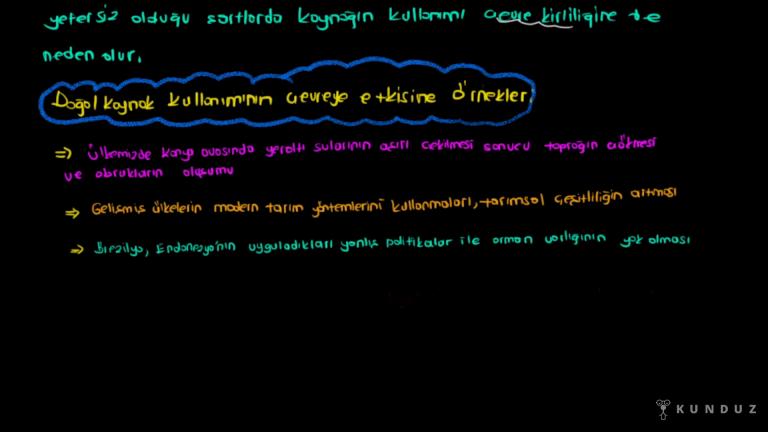 yetersiz olduğu şartlarda kaynağın kullanımı çevre kirliliğine de
neden olur.
Doğal kaynak kullanımının çevreye etkisine örnekler:
⇒ Ülkemizde Konya ovasında yeraltı sularının aşırı çekilmesi sonucu toprağın çökmesi
ve obrukların oluşumu
⇒ Gelişmiş ülkelerin modern tarım yöntemlerini kullanmaları, tarımsal çeşitliliğin artması
⇒ Brezilya, Endonezya'nın uyguladıkları yanlış politikalar ile orman varlığının yok olması
KUNDUZ